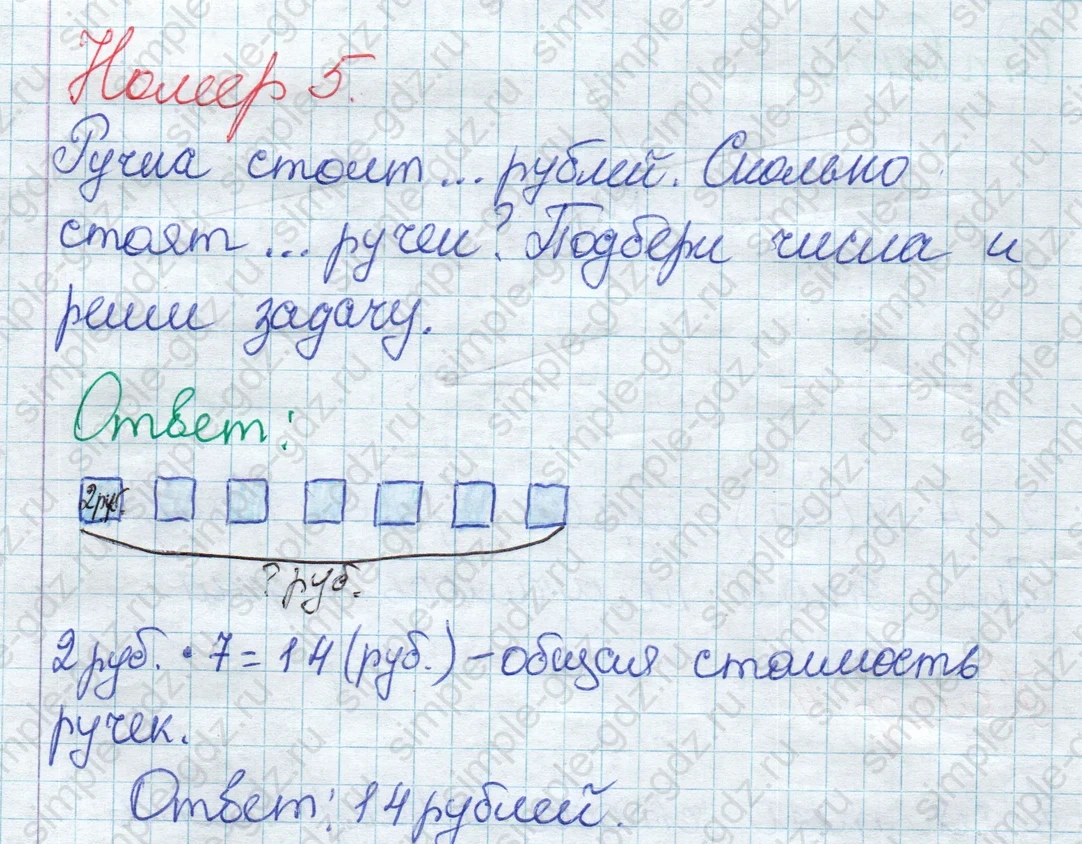 Номер 5.
Ручка стоит ... рублей. Сколько
стоят ... ручек? Подбери числа и
реши задачу.
Ответ:
2руб.
? руб.
2 руб. · 7 = 14 (руб.) - общая стоимость
ручек.
Ответ: 14 рублей.
simple-gdz.ru